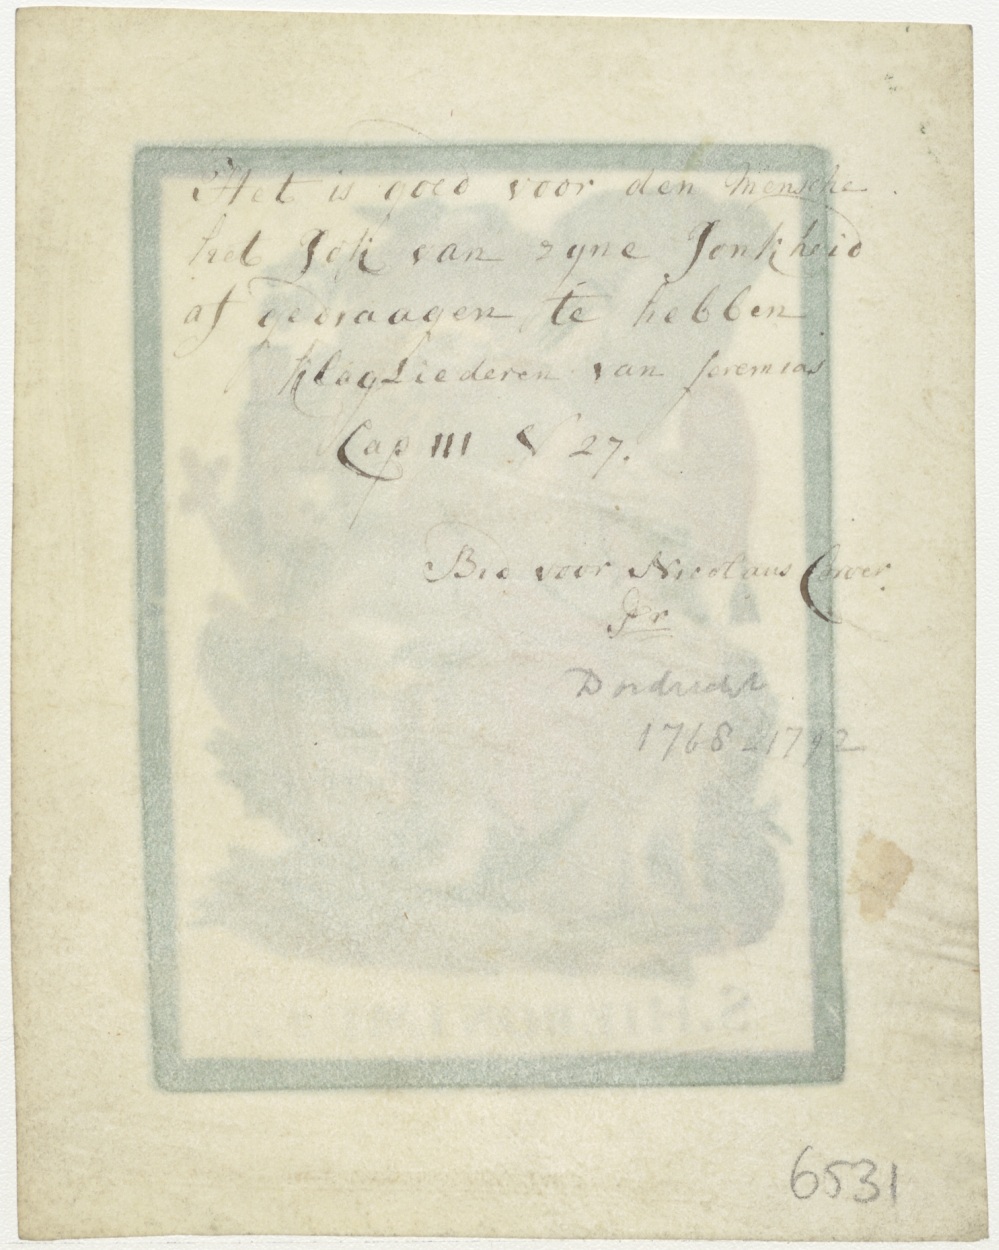 Het is goed voor den Mensche
het Jok van zyne Jonkheid
af gedraagen te hebben
KlagLiederen van Jeremias
Cap III V 27.
Bid voor Nicolaus
Jr
Dordrecht
1768-1792
6531